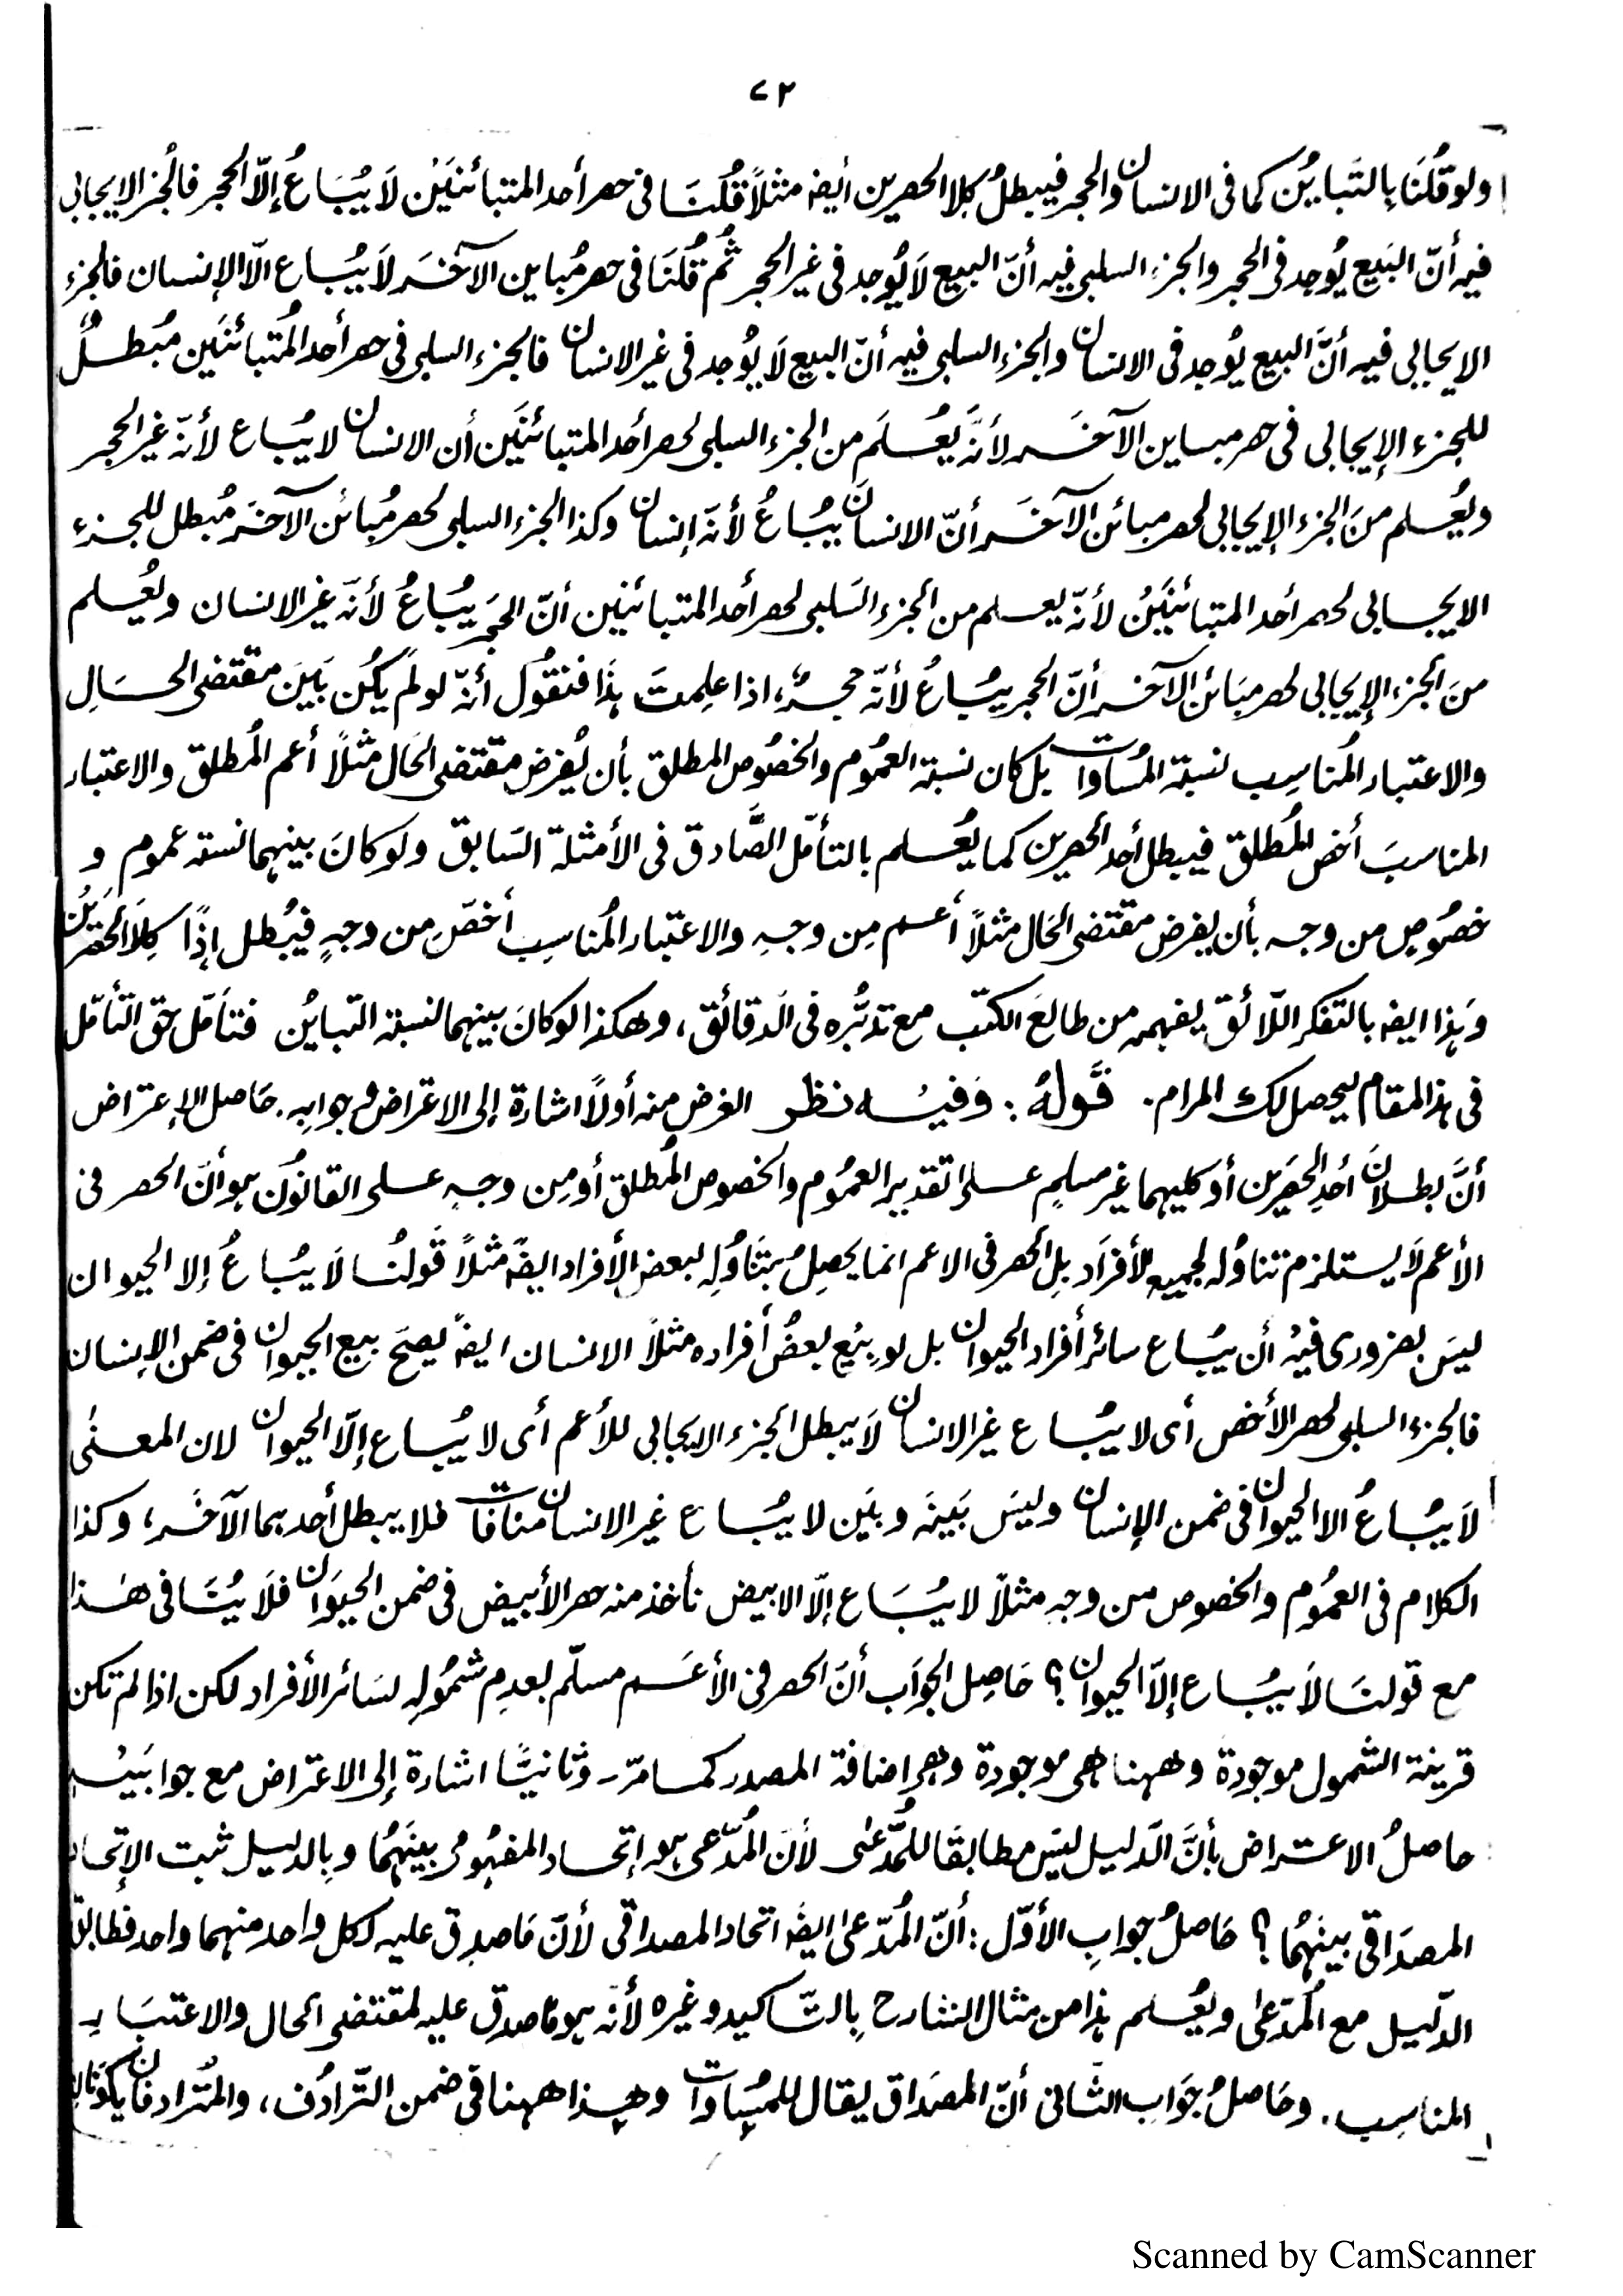 ٧٢
ولو قُلنَا بِالتَّبايُن كما فى الانسان والحجر فيبطلُ كِلا الحصرين أيضہ مثلاً قُلنَا فى حصر أحد المتبائنَيْن لَا يُبَاعُ إلّا الحجر فالجُز الإيجابى
فيه أنّ البَيع يُوجد فى الحجر والجزء السلبى فيه أنّ البيع لَا يُوجد فى غير الحجر ثُم قُلنَا فى حصر مُباين الآخَر لَا يُباع الّا الإنسان فالجزء
الايجابى فيه أنَّ البيع يُوجد فى الانسان والجزء السلبى فيه أنّ البيع لَا يُوجد فى غير الانسان فالجزء السلبى فى حصر أحد المُتبائنَين مُبطلٌ
للجزء الإيجابى فى حصر مباين الآخَر لأنَّه يُعلَم من الجزء السلبى لحصر أحد المتبائنَين أن الانسان لا يُباع لأنّه غير الحجر
ويُعلم منَ الجزء الإيجابى لحصر مبائن الآخَر أنّ الانسانَ يُبَاعُ لأنّه إنسان وكذا الجزء السلبى لحصر مُبائن الآخَر مُبطل للجزء
الايجابى لحصر أحد المتبائنَيَنُ لأنّه يعلم من الجزء السَلبى لحصر أحد المتبائنين أنّ الحجَر يُبَاعُ لأنّه غير الانسان ويُعلم
منَ الجزء الإيجابى لحصر مبَائن الآخر أنّ الحجر يبُاعُ لأنّه حجرٌ، اذا علِمتَ ہذَا فنقُول أنّه لو لَم يكُن بَينَ مقتضى الحَالِ
والاعتبار المُناسِب نسبة المُساوات بل كان نسبة العمُوم والخصُوص المطلق بأن يُفرض مقتضى الحَال مثلاً أعم المُطلق والاعتبار
المناسبَ أخص المُطلق فيبطل أحد الحصرين كما يُعلم بالتأمّل الصَّادق فى الأمثلة السَابق ولو كانَ بينهما نسبة عموم و
خصُوصِ من وجہ بأن يفرض مقتضى الحَال مثلاً أعم مِن وجہِ والاعتبار المُناسِب أخصّ من وجہٍ فيُبطل إذًا كِلاَ الحَصرَيْنُ
وَہذا ايضہ بالتفكر اللّائق يفہمہ من طالعَ الكتب مع تدبُّره فى الدقائق، وهكذا لو كانَ بينہما نسبة التبايُن فتأمّل حق التأمّل
فى ہذا لمقام ليحصل لك المرام. قَولهُ: وَفيْه نظر الغرض منه أولاً اشارة إلى الاعتراض و جوابِه. حَاصل الإعتراض
أنَّ بطلانَ أحَدِ الحَصرَين أو كليهما غير مسلمٍ على تقدير العمُوم والخصوص المُطلق أو مِن وجہٍ على القانُون ہو أنَّ الحصر فى
الأعم لَا يستلزم تناوُله لجميع الأفرَاد بل الحصر فى الاعم انما يحصِلُ بتَناوُلِه لبعض الأفراد ايضہً مثلاً قَولنُا لَا يُبَاعُ إلا الحيوان
ليسَ بضرورى فيْه أن يُبَاع سائر أفراد الحيوان بل لو بِيْع بعضُ أفراده مثلاً الانسان ايضہً يصحّ بيع الحيوان فى ضمن الإنسان
فالجزء السلبى لحصر الأخص أى لا يبُاع غير الانسان لَا يبطل الجزء الايجابى للأعم أى لا يُباع إلّا الحيوان لان المعنٰى
لَا يبُاعُ الا الحيوان فى ضمن الإنسان وليسَ بَينَہ وبَين لا يبُاع غير الانسان منافات فلا يبطل أحدہما الآخَر، وكذا
الكلام فى العمُوم والخصوص من وجہٍ مثلاً لا يبُاع إلّا الابيض نأخذ منه حصر الأبيض فى ضمن الحيوَان فلَا يُنَافى هٰذا
مع قولنَا لَا يبُاع إلّا الحيوان؟ حَاصِل الجوَاب أنّ الحصر فى الأعَم مسلّم بعدمِ شمُولِه لسَائر الأفراد لكن اذا لم تكن
قرينة الشمول موجودة وههنا هى موجودة وهى اضافة المصدر كما مرّ۔ وثانيًا اشارة إلى الاعتراض مع جوابَيْہِ
حاصلُ الاعتراض بأنَّ الدّليل ليسَ مطابقًا للمُدّعٰى لأنَ المُدّعى ہو إتحاد المفہُومى بينَہُمَا وبِالدليل ثبت الإتحاد
المصدَاقى بينَهُمُا؟ حَاصلُ جوابِ الأوّل: أنّ المُدّعىٰ ايضہً اتحاد المصداقى لأنّ مَا صدِق عليہ لكل واحد منہما واحد فطابق
الدّليل مع المُدّعىٰ ويُعلم ہٰذا من مثال الشارح بِالتّاكيد وغيره لأنّہ ہو مَا صدق عليہ لمقتضى الحال والاعتبَار
المناسِب. وحَاصلُ جوَاب الثّانى أنّ المصدَاق يقال للمُساوات وهذا ههنا فى ضمن التّرادُف، والمُترادفان يكونَان
Scanned by CamScanner